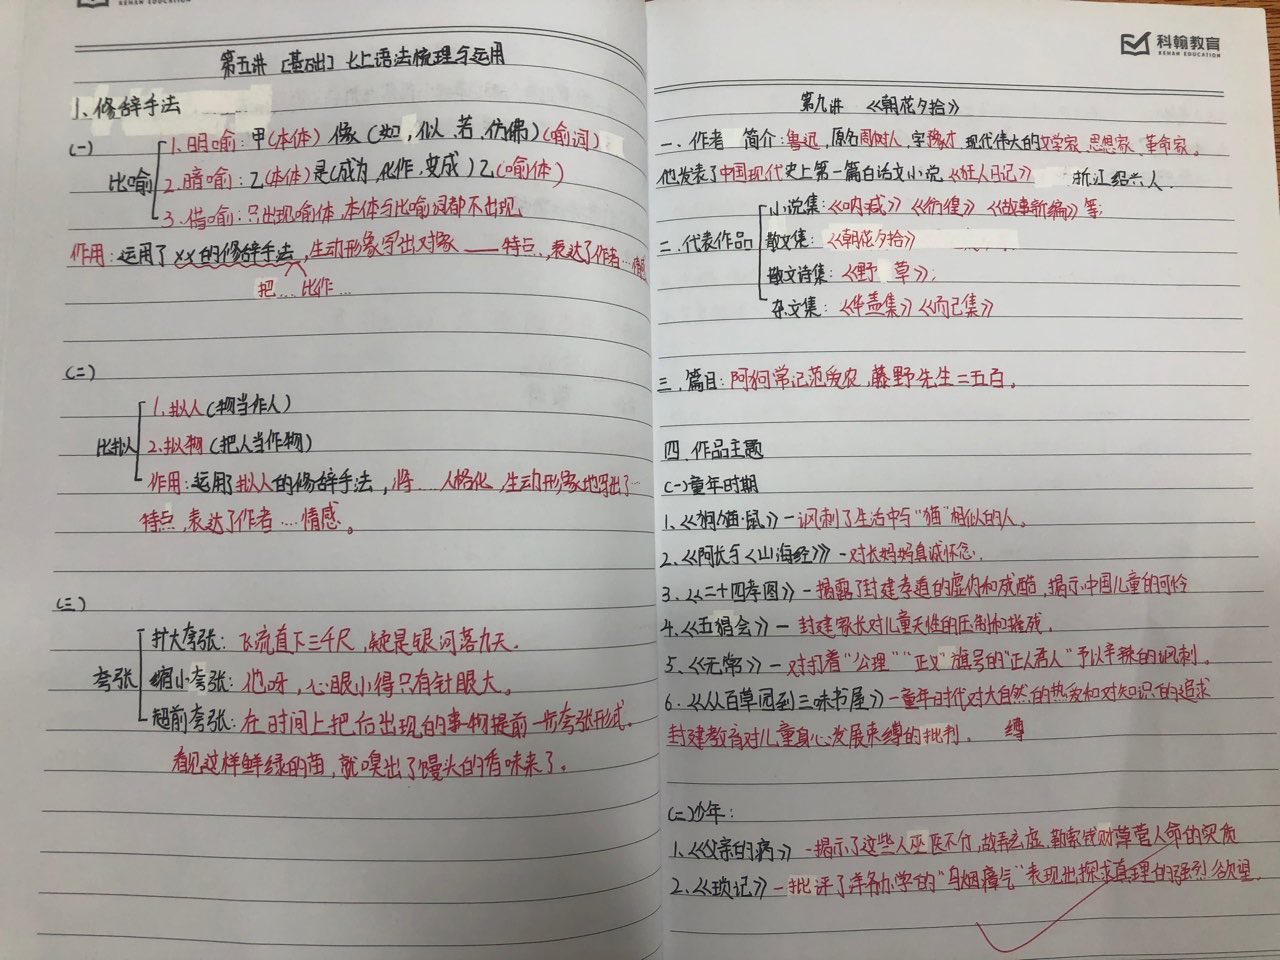 KEHAN EDUCATION
第五讲 [基础] 七上语法梳理与运用
1、修辞手法
(一)
比喻
1.明喻:甲(本体)像(如,似 若 仿佛)(喻词)
2.暗喻:乙(本体)是(成为,化作,变成)乙(喻体)
3.借喻:只出现喻体,本体与比喻词都不出现.
作用:运用了xx的修辞手法,生动形象写出对象——特点,表达了作者…情感
把…比作…
(二)
比拟
1.拟人(物当作人)
2.拟物(把人当作物)
作用:运用了拟人的修辞手法,将…人格化,生动形象地写出了…
特点,表达了作者…情感。
(三)
夸张
扩大夸张:飞流直下三千尺,疑是银河落九天.
缩小夸张:他呀,心眼小得只有针眼大。
超前夸张:在时间上把后出现的事物提前一所夸张形式.
看见这样鲜绿的苗,就嗅出了馒头的香味来了。
科翰教育
KEHAN EDUCATION
第九讲 《朝花夕拾》
一、作者 简介:鲁迅,原名周树人,字豫才 现代伟大的文学家 思想家 革命家.
他发表了中国现代史上第一篇白话文小说《狂人日记》 浙江绍兴人.
二.代表作品
小说集:《呐喊》《彷徨》《故事新编》等;
散文集:《朝花夕拾》
散文诗集:《野草》;
杂文集:《华盖集》《而已集》
三.篇目:阿狗常记范爱农,藤野先生二五百。
四.作品主题
(一)童年时期
1、《狗·猫·鼠》-讽刺了生活中与“猫”相似的人。
2、《阿长与《山海经》》-对长妈妈真诚怀念.
3.《二十四孝图》-揭露了封建孝道的虚伪和残酷,揭示中国儿童的可怜
4.《五猖会》-封建家长对儿童天性的压制和摧残.
5、《无常》-对打着“公理”“正义”旗号的“正人君人”予以辛辣的讽刺。
6.《从百草园到三味书屋》-童年时代对大自然的热爱和对知识的追求
封建教育对儿童身心发展束缚的批判. 缚
(二)少年:
1.《父亲的病》-揭示了这些人巫医不分,故弄玄虚,勒索钱财草菅人命的实质
2.《琐记》-批评了洋务办学的“乌烟瘴气”表现出探求真理的强烈欲望.